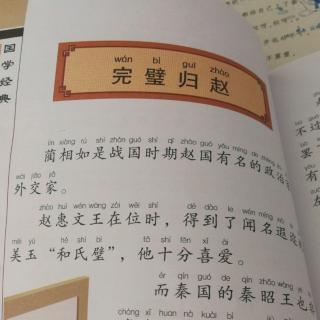 国学经典
wán bì guī zhào
完璧归赵
lìn xiàng rú shì zhàn guó shí qī zhào guó yǒu míng de zhèng
蔺相如是战国时期赵国有名的政治
wài jiāo jiā
外交家。
zhào huì wén wáng zài wèi shí dé dào le wén míng
赵惠文王在位时，得到了闻名遐
měi yù hé shì bì tā shí fēn xǐ ài
美玉“和氏璧”，他十分喜爱。
ér qín guó de qín zhāo wáng yě
而秦国的秦昭王也
不过
罢
有